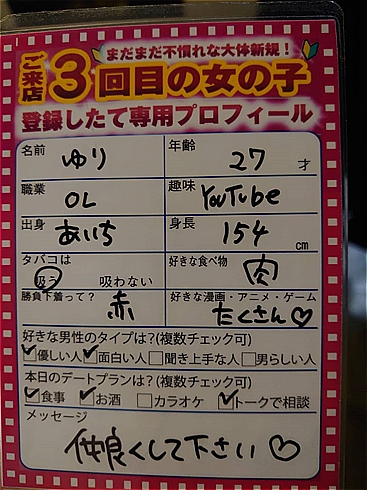 まだまだ不慣れな大体新規！
ご来店3回目の女の子
登録したて専用プロフィール
名前 ゆり 年齢 27才
職業 OL 趣味 YouTube
出身 あいち 身長 154cm
タバコは 吸う 吸わない 好きな食べ物 肉
勝負下着って？ 赤 好きな漫画・アニメ・ゲーム たくさん♡
好きな男性のタイプは？(複数チェック可)
☑優しい人 ☑面白い人 □聞き上手な人 □男らしい人
本日のデートプランは？(複数チェック可)
☑食事 ☑お酒 □カラオケ ☑トークで相談
メッセージ
仲良くして下さい♡